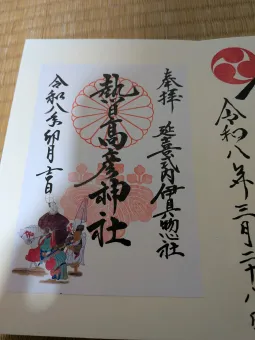 奉拝 延喜式内伊具惣社
熱日高彦神社
令和八年卯月
令和八年三月二十八日